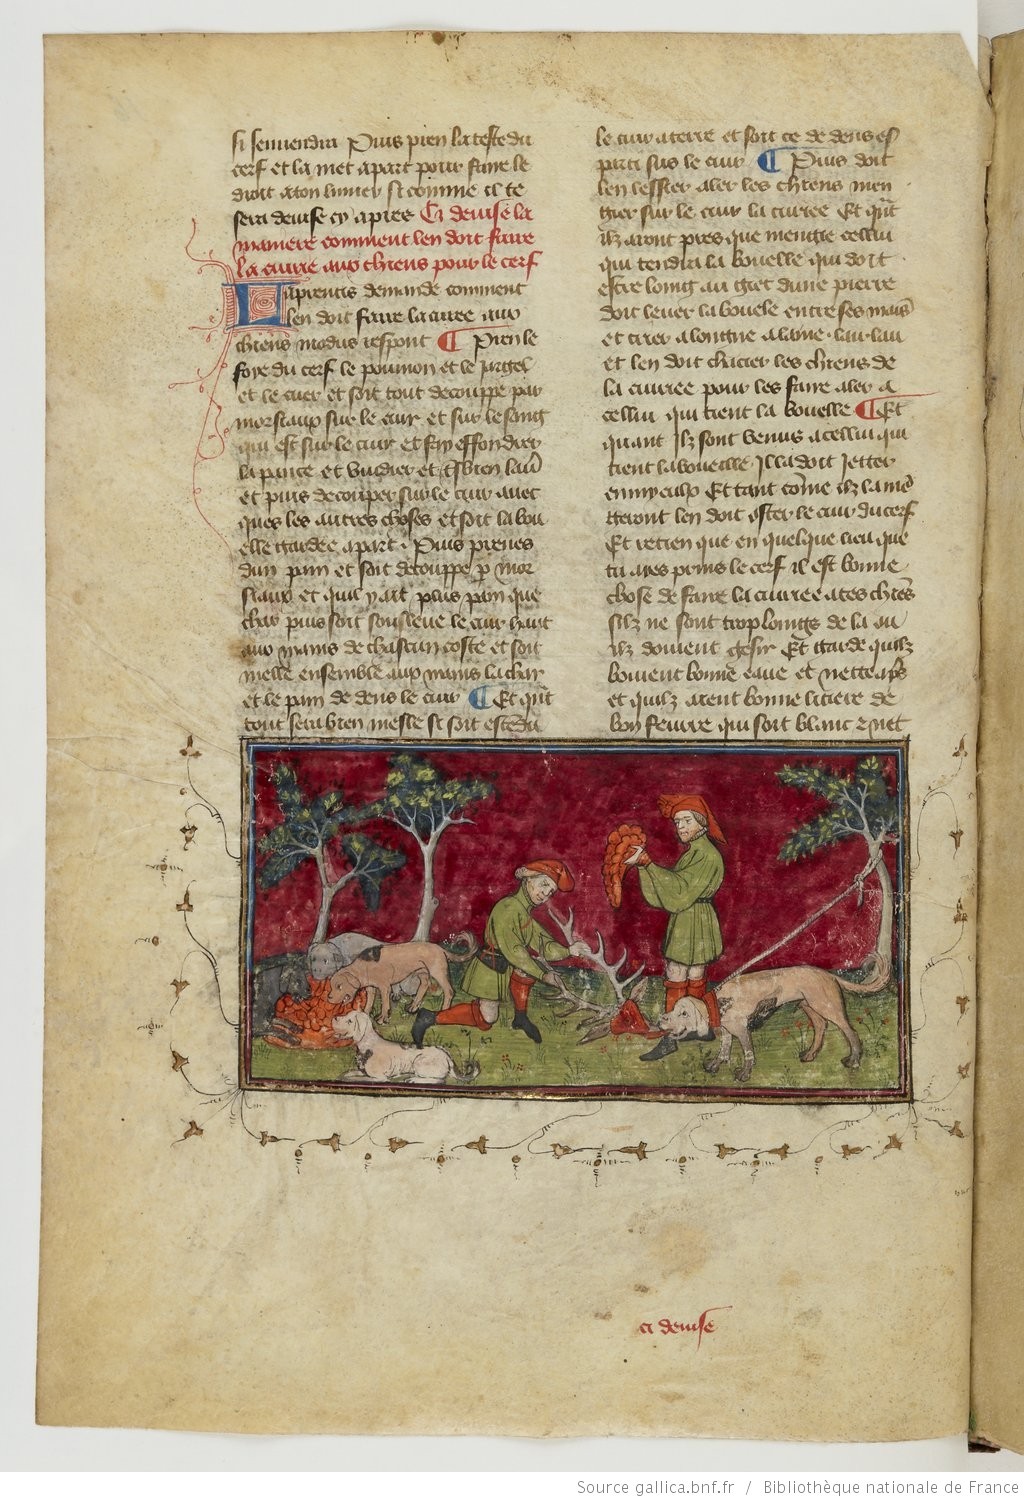 si senvendra Puis pren la teste du
cerf et la met apart pour faire le
droit a ton limier si comme il te
sera devise cy apres Ci devise la
maniere comment len doit faire
la cuiree aux chiens pour le cerf
Laprentis demande comment
len doit faire la cuiree aux
chiens modus respont ¶ Pren le
foye du cerf le poumon et le jargel
et le cuer et soit tout decouppe par
morseaux sur le cuir et sur le sang
qui est sur le cuir et fay effondrer
la pance et vuidier et tresbien lau
et puis decouper sur le cuir avec
ques les autres choses et soit la bou
elle gardee apart. Puis prenes
dun pain et soit decouppe p mor
siaux et quil y ait plus pain que
char puis soit sousleve le cuir hault
aux mains de chascun coste et soit
melle ensemble aux mains la char
et le pain de dens le cuir ¶ Et qnt
tout sera bien mesle si soit estdu
le cuir a terre et soit ce de dens es
parti sus le cuir ¶ Puis doit
len lessier aler les chiens men
gier sur le cuir la cuiree Et qnt
ilz aront pres que mengie cellui
qui tendra la bouelle qui doit
estre loing au giet dune pierre
doit lever la bouele entre ses mais
et crier a longue alaine . lau lau
et len doit chacier les chiens de
la cuiree pour les faire aler a
cellui qui tient la bouelle ¶ Et
quant Ilz sont venus a cellui qui
tient la bouelle . Il la doit Jetter
enmy eulx Et tant come ilz la me
geront len doit oster le cuir du cerf
Et retien que en quelque lieu que
tu ares prins le cerf il est bonne
chose de faire la cuiree a tes chies
silz ne sont trop loings de la ou
ilz doivent gesir Et garde quilz
boivent bonne eaue et nette aps
et quilz aient bonne litiere de
bon feurre qui soit blanc 2 net
ci devise
Source gallica.bnf.fr / Bibliothèque nationale de France